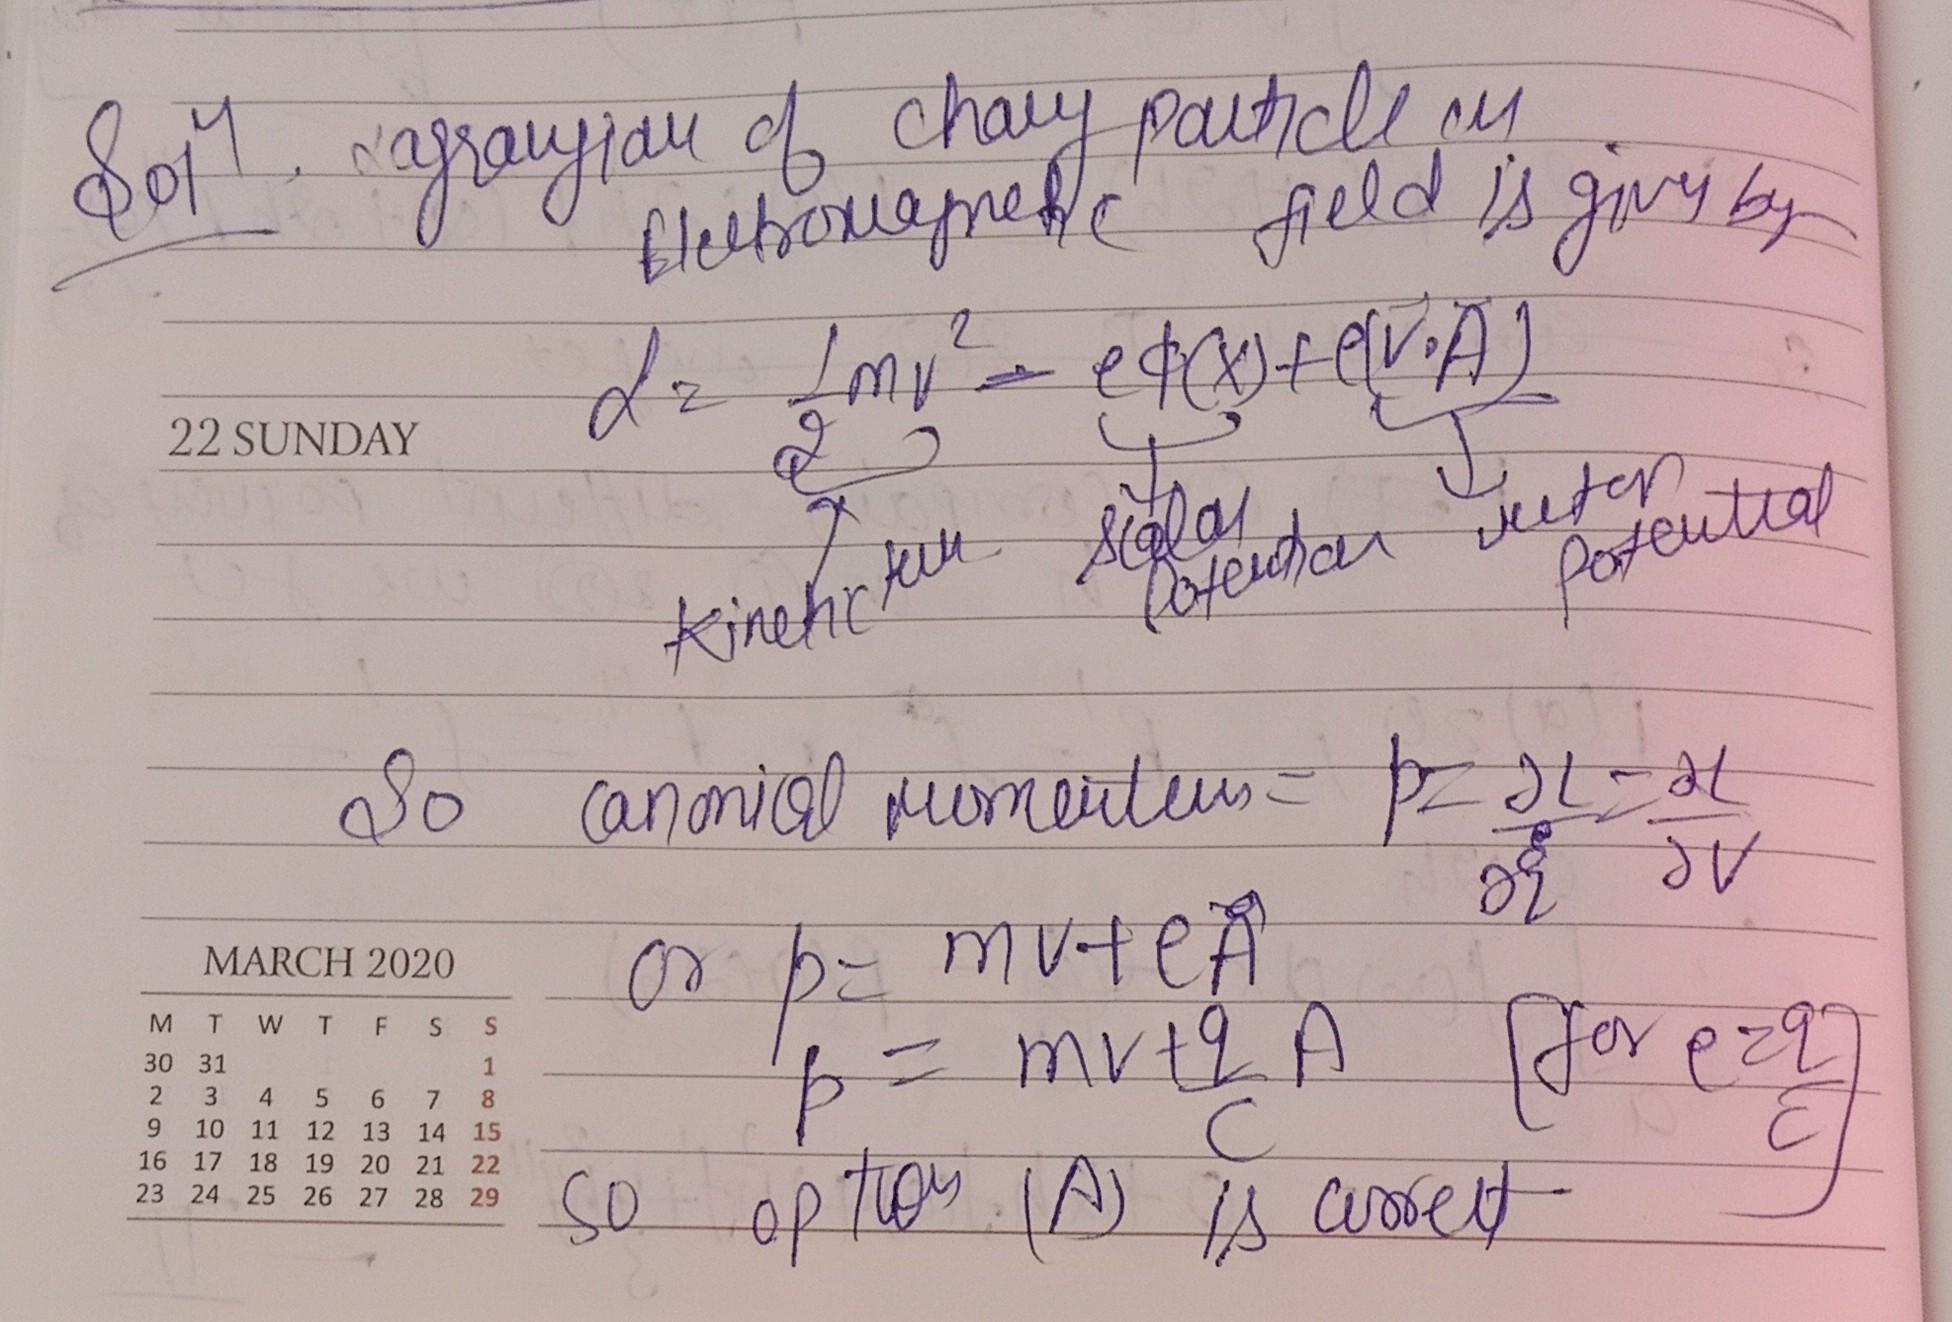 Solⁿ. Lagrangian of charg particle in
Electromagnetic field is given by
L = 1/2 mv² - eϕ(x) + e(v⃗.A⃗)
22 SUNDAY
Kinetic term scalar potential vector potential
So canonical momentum = p = ∂L/∂q̇ = ∂L/∂v
or p = mv + eA⃗
p = mv + q/c A [for e = q/c]
So option (A) is correct
MARCH 2020
M T W T F S S
30 31 1
2 3 4 5 6 7 8
9 10 11 12 13 14 15
16 17 18 19 20 21 22
23 24 25 26 27 28 29